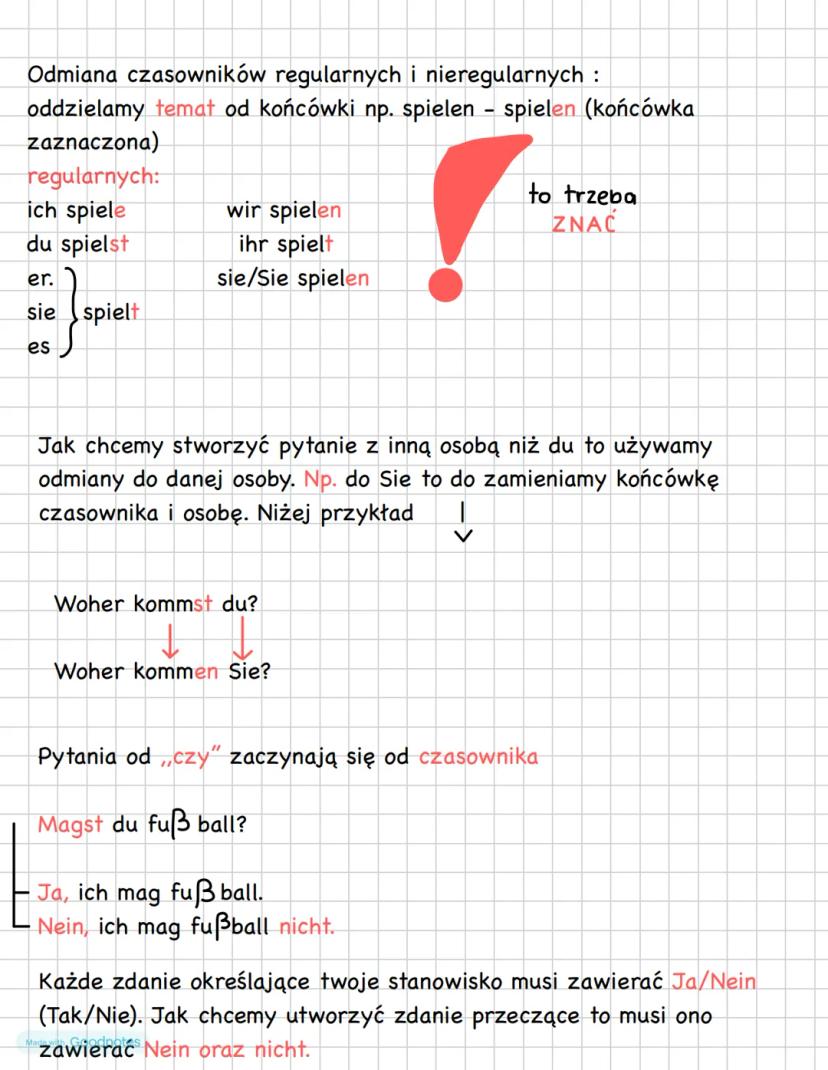 Odmiana czasowników regularnych i nieregularnych :
oddzielamy temat od końcówki np. spielen – spielen (końcówka
zaznaczona)
regularnych:
ich spiele wir spielen
du spielst ihr spielt
er. sie/Sie spielen
sie spielt
es
to trzeba
ZNAĆ
Jak chcemy stworzyć pytanie z inną osobą niż du to używamy
odmiany do danej osoby. Np. do Sie to do zamieniamy końcówkę
czasownika i osobę. Niżej przykład
Woher kommst du?
Woher kommen Sie?
Pytania od „czy” zaczynają się od czasownika
Magst du fuß ball?
Ja, ich mag fuß ball.
Nein, ich mag fußball nicht.
Każde zdanie określające twoje stanowisko musi zawierać Ja/Nein
(Tak/Nie). Jak chcemy utworzyć zdanie przeczące to musi ono
zawierać Nein oraz nicht.
Made with Goodnotes